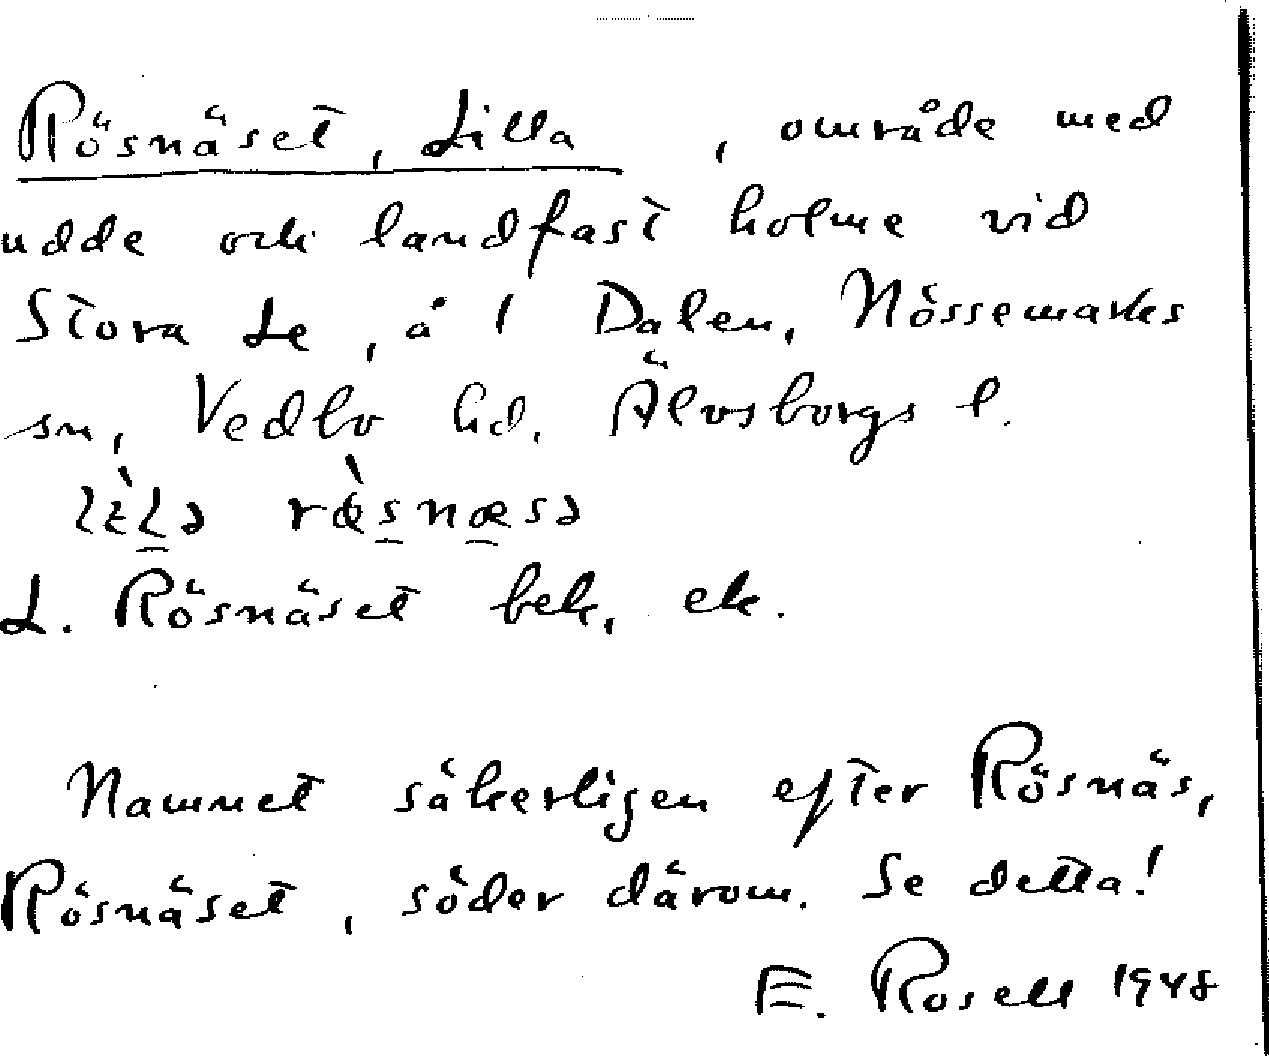 Rösnäset, Lilla , område med
udde och landfast holme vid
Stora Le, å 1 Dalen, Nössemarks
sn, Vedbo hd. Älvsborgs l.
L. Rösnäset bek, ek.
Namnet säkerligen efter Rösnäs,
Rösnäset, söder därom. Se detta!
E. Rosell 1948